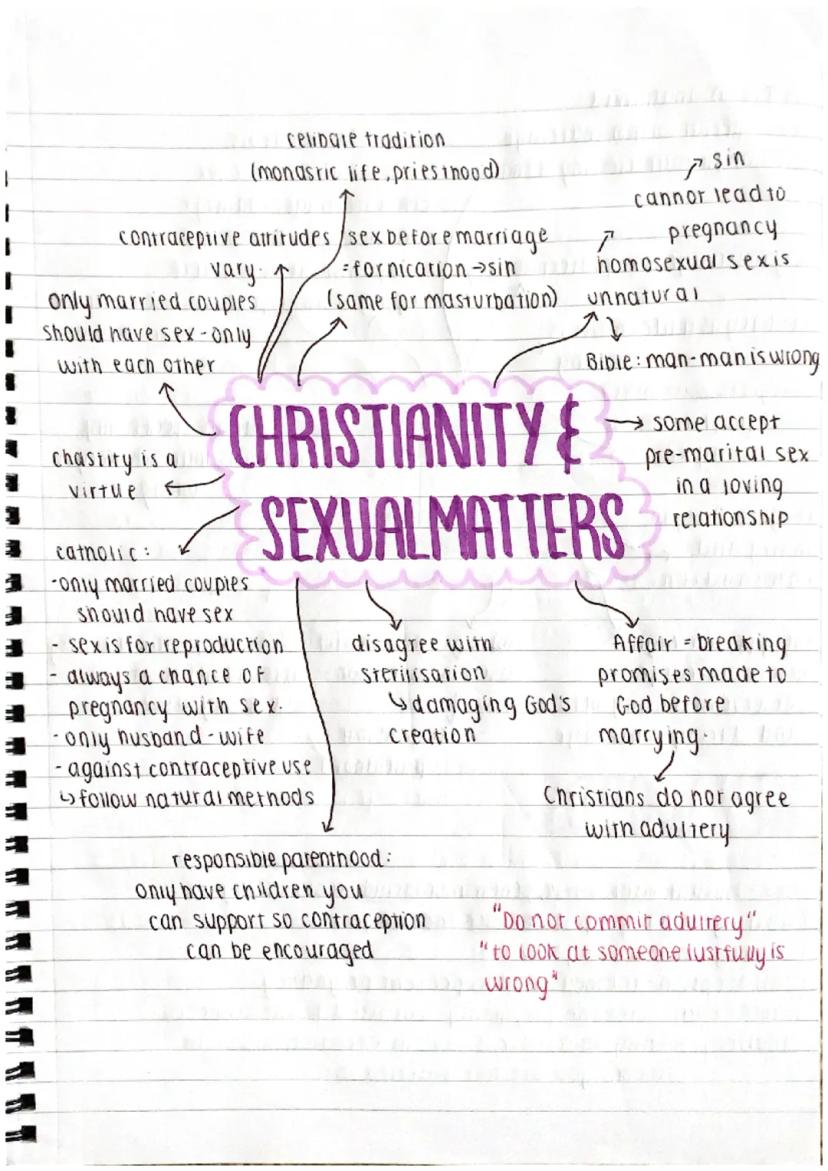 celibate tradition
(monastic life, priesthood)
contraceptive attitudes
vary.
sex before marriage
= fornication → sin
(same for masturbation)
sin
cannot lead to
pregnancy
homosexual sex is
unnatural
Bible: man-man is wrong
only married couples
should have sex - only
with each other
CHRISTIANITY &
SEXUAL MATTERS
some accept
pre-marital sex
in a loving
relationship
chastity is a
virtue
catholic:
- only married couples
should have sex
- sex is for reproduction
- always a chance of
pregnancy with sex.
- only husband-wife
- against contraceptive use
↳ follow natural methods
disagree with
sterilisation
↳ damaging God's
creation
Affair = breaking
promises made to
God before
marrying.
Christians do not agree
with adultery
responsible parenthood:
only have children you
can support so contraception
can be encouraged
"Do not commit adultery"
"to look at someone lustfully is
wrong"